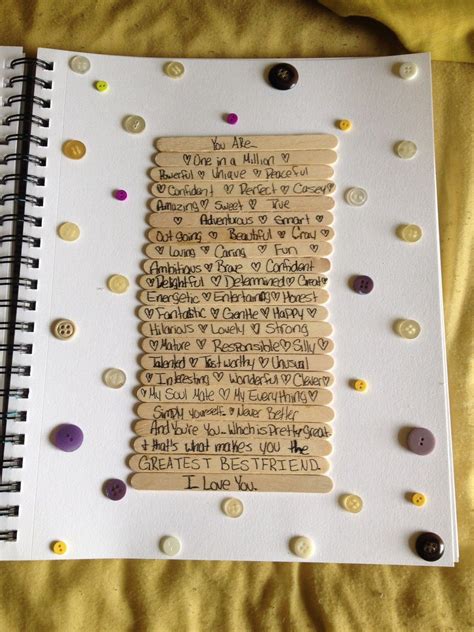 You Are...
♡ One in a Million ♡
Powerful ♡ Unique ♡ Peaceful
♡ Confident ♡ Perfect ♡ Casey
Amazing ♡ Sweet ♡ True
♡ Adventurous ♡ Smart ♡
Outgoing ♡ Beautiful ♡ Cray
♡ Loving ♡ Caring ♡ Fun ♡
Ambitious ♡ Brave ♡ Confident
♡ Delightful ♡ Determined ♡ Great
Energetic ♡ Entertaining ♡ Honest
♡ Fantastic ♡ Gentle ♡ Happy ♡
Hilarious ♡ Lovely ♡ Strong
♡ Mature ♡ Responsible ♡ Silly
Talented ♡ Trustworthy ♡ Unusual
♡ Interesting ♡ Wonderful ♡ Clever
♡ My Soul Mate ♡ My Everything ♡
Simply Yourself ♡ Never Better
And You're You - Which is Pretty Great
& that's what makes you the
GREATEST BESTFRIEND.
I Love You.